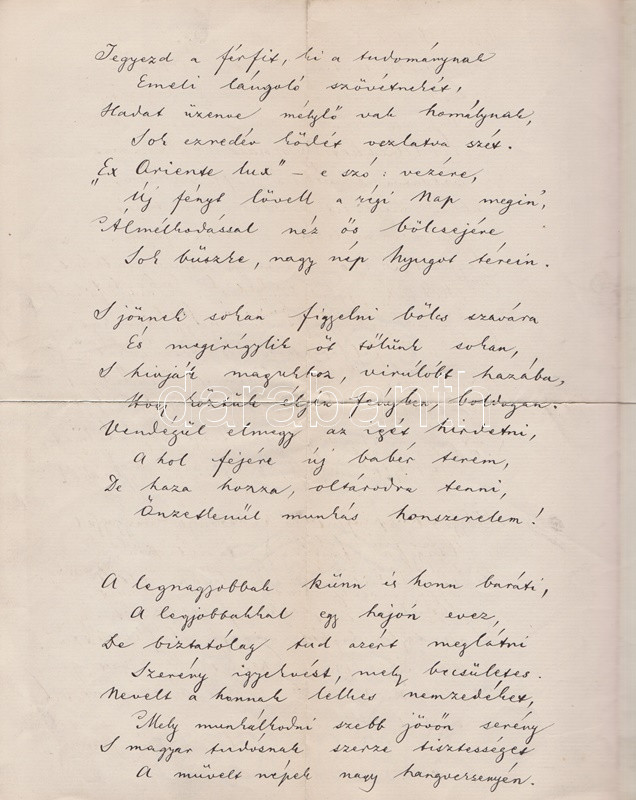 Jegyezd a férfit, ki a tudománynak
Emeli lángoló szövétnekét,
Hadat üzenve mélylő vak homálynak,
Sok ezredév ködét oszlatva szét.
"Ex Oriente lux" – e szó : vezére,
Új fényt lövell a régi Nap megin',
Álmélkodással néz ős bölcsejére
Sok büszke, nagy nép Nyugot térein.
S jönnek sokan figyelni bölcs szavára
És megirígylik őt tőlünk sokan,
S hivják magukhoz, virulóbb hazába,
Hogy köztük éljen fényben, boldogan.
Vendégül elmegy az igét hirdetni,
A hol fejére új babér terem,
De haza hozza, oltárodra tenni,
Önzetlenűl munkás honszerelem!
A legnagyobbak künn és honn baráti,
A legjobbakkal egy hajón evez,
De biztatólag tud azért meglátni
Szerény igyekvést, mely becsületes.
Nevelt a honnak lelkes nemzedéket,
Mely munkálkodni szebb jövőn serény
S magyar tudósnak szerze tisztességet
A művelt népek nagy hangversenyén.
darabanth